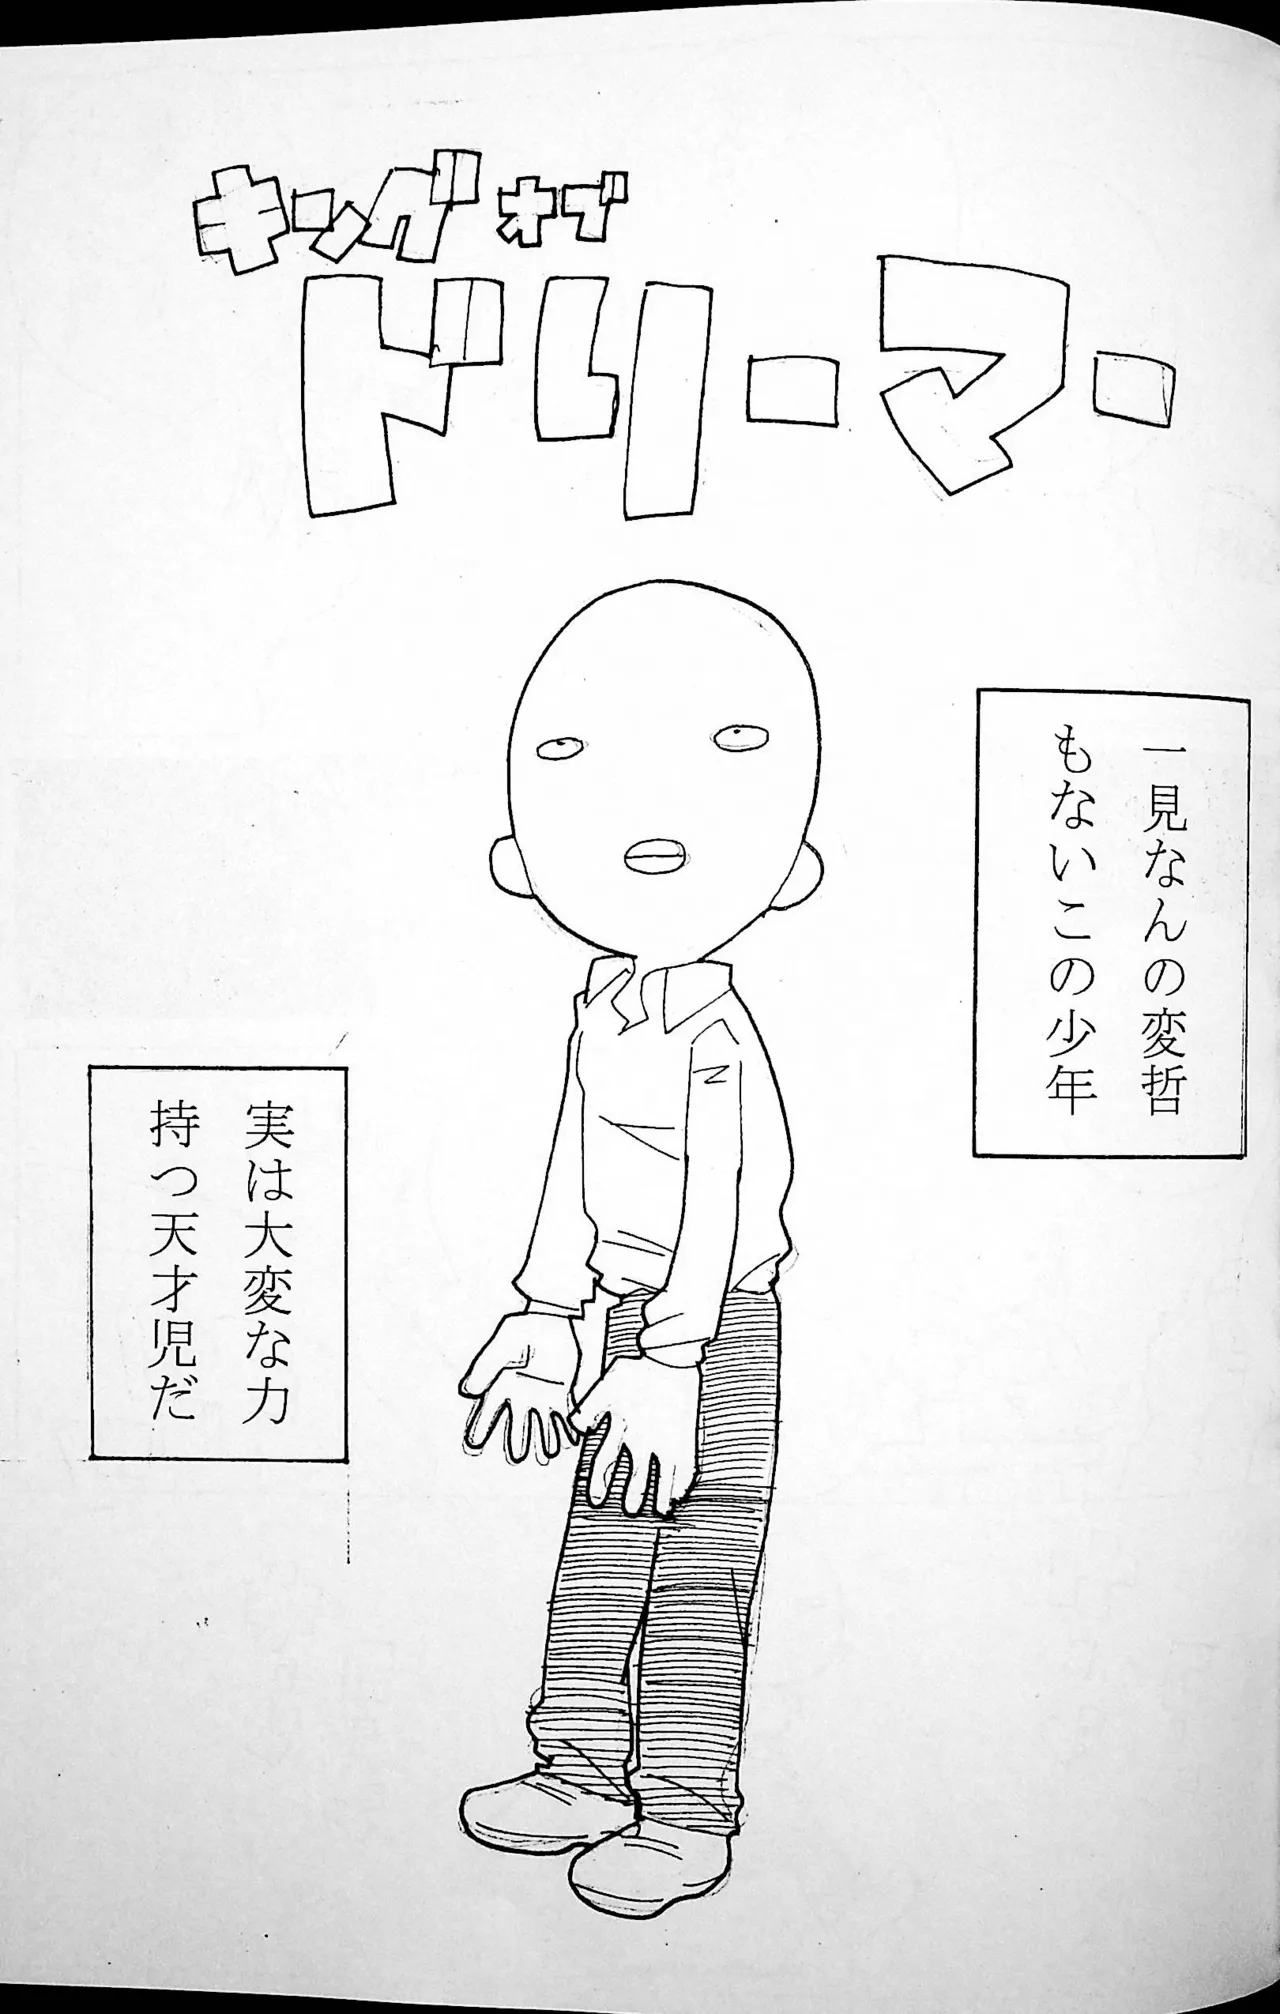 キング オブ
ドリーマー
一見なんの変哲
もないこの少年
実は大変な力
持つ天才児だ